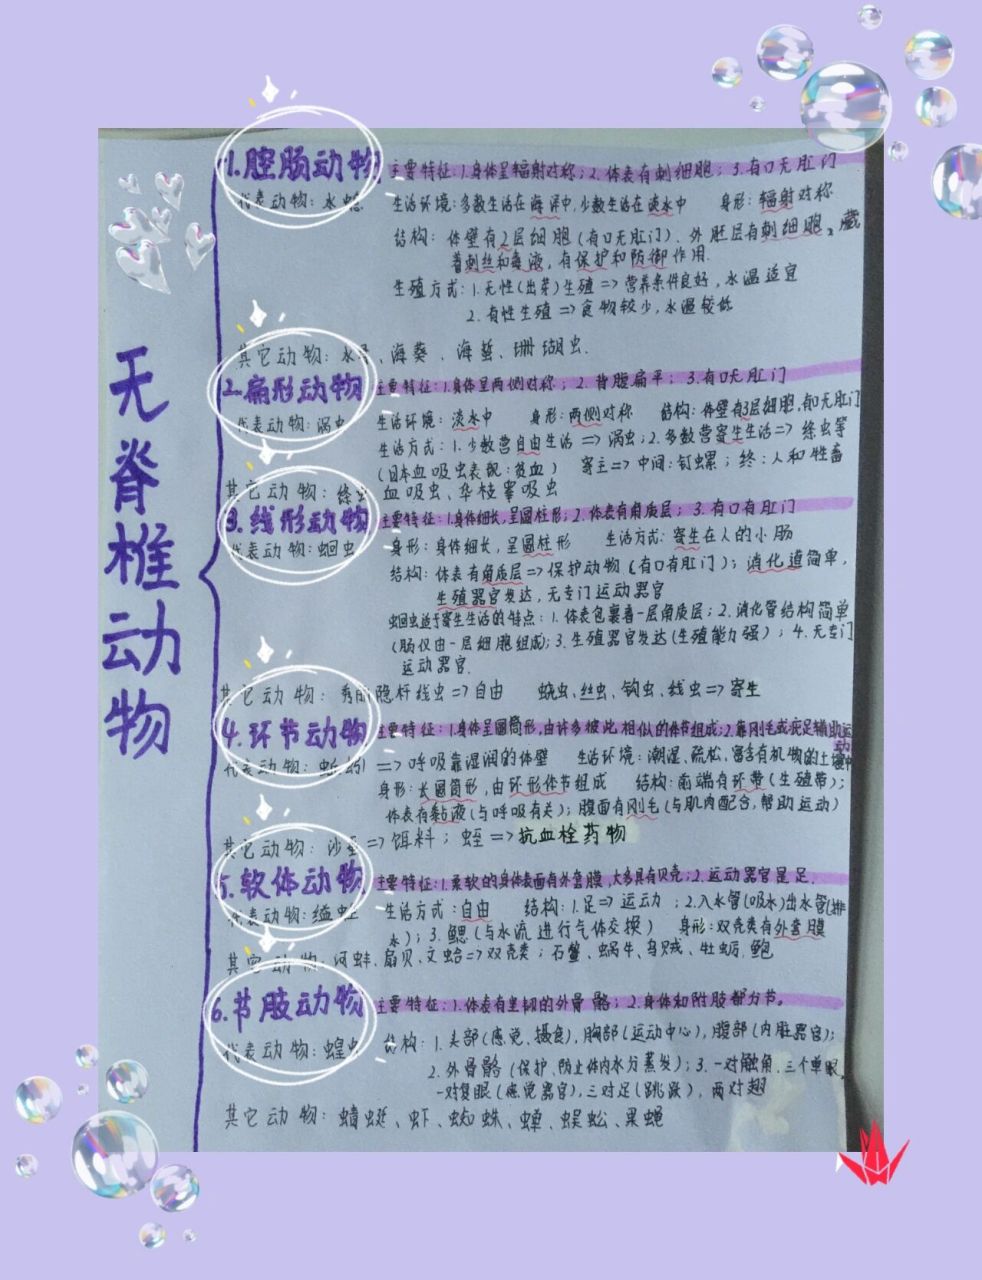 无脊椎动物
1.腔肠动物 主要特征:1.身体呈辐射对称;2.体表有刺细胞;3.有口无肛门
代表动物:水螅 生活环境:多数生活在海洋中,少数生活在淡水中 身形:辐射对称
结构:体壁有2层细胞(有口无肛门)、外胚层有刺细胞,藏
着刺丝和毒液,有保护和防御作用.
生殖方式:1.无性(出芽)生殖=>营养条件良好,水温适宜
2.有性生殖=>食物较少,水温较低
其它动物:水母、海葵、海蜇、珊瑚虫.
2.扁形动物 主要特征:1.身体呈两侧对称;2.背腹扁平;3.有口无肛门
代表动物:涡虫 生活环境:淡水中 身形:两侧对称 结构:体壁有3层细胞,有口无肛门
生活方式:1.少数营自由生活=>涡虫;2.多数营寄生生活=>绦虫等
(日本血吸虫表现:贫血) 寄主=>中间:钉螺;终:人和牲畜
其它动物:绦虫 血吸虫、华枝睾吸虫
3.线形动物 主要特征:1.身体细长,呈圆柱形;2.体表有角质层;3.有口有肛门
代表动物:蛔虫 身形:身体细长,呈圆柱形 生活方式:寄生在人的小肠
结构:体表有角质层=>保护动物(有口有肛门);消化道简单,
生殖器官发达,无专门运动器官
蛔虫适于寄生生活的特点:1.体表包裹着一层角质层;2.消化管结构简单
(肠仅由一层细胞组成);3.生殖器官发达(生殖能力强);4.无专门
运动器官.
其它动物:秀丽隐杆线虫=>自由 蛲虫、丝虫、钩虫、线虫=>寄生
4.环节动物 主要特征:1.身体呈圆筒形,由许多彼此相似的体节组成;2.靠刚毛或疣足辅助运动
代表动物:蚯蚓=>呼吸靠湿润的体壁 生活环境:潮湿、疏松、富含有机物的土壤中
身形:长圆筒形,由环形体节组成 结构:前端有环带(生殖带);
体表有黏液(与呼吸有关);腹面有刚毛(与肌肉配合,帮助运动)
其它动物:沙蚕=>饵料;蛭=>抗血栓药物
5.软体动物 主要特征:1.柔软的身体表面有外套膜,大多具有贝壳;2.运动器官是足.
代表动物:缢蛏 生活方式:自由 结构:1.足=>运动;2.入水管(吸水)出水管(排
水);3.鳃(与水流进行气体交换) 身形:双壳类有外套膜
其它动物:河蚌、扇贝、文蛤=>双壳类;石鳖、蜗牛、乌贼、牡蛎、鲍
6.节肢动物 主要特征:1.体表有坚韧的外骨骼;2.身体和附肢都分节。
代表动物:蝗虫 结构:1.头部(感觉、摄食),胸部(运动中心),腹部(内脏器官);
2.外骨骼(保护、防止体内水分蒸发);3.一对触角、三个单眼,
一对复眼(感觉器官),三对足(跳跃),两对翅
其它动物:蜻蜓、虾、蜘蛛、蝉、蜈蚣、果蝇